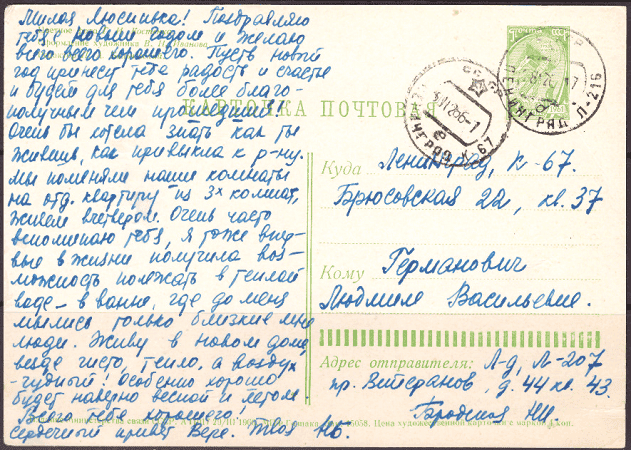 Милая Люсинька! Поздравляю
тебя с новым годом и желаю
всего всего хорошего. Пусть новый
год принесет тебе радость и счастье
и будет для тебя более благо-
получным чем прошедший!
Очень бы хотела знать как ты
живешь, как привыкла к р-ну.
Мы поменяли наше комнаты
на отд. квартиру из 3х комнат,
живем вчетвером. Очень часто
вспоминаю тебя, я тоже впер-
вые в жизни получила воз-
можность полежать в теплой
воде - в ванне, где до меня
мылись только близкие мне
люди. Живу в новом доме,
везде чисто, тепло, а воздух
- чудный! Особенно хорошо
будет наверно весной и летом
Всего тебе хорошего!
Сердечный привет Вере. Твоя НБ.
ПОЧТА
КАРТОЧКА ПОЧТОВАЯ
ЛЕНИНГРАД Л-216
ЛЕНИНГРАД К-67
Куда Ленинград, К-67.
Брюсовская 22, кв. 37
Кому Германович
Людмиле Васильевне.
Адрес отправителя: Л-д, Л-207
пр. Ветеранов, д. 44 кв. 43.
Бродская Н.И.
Цена художественной карточки с маркой 4 коп.